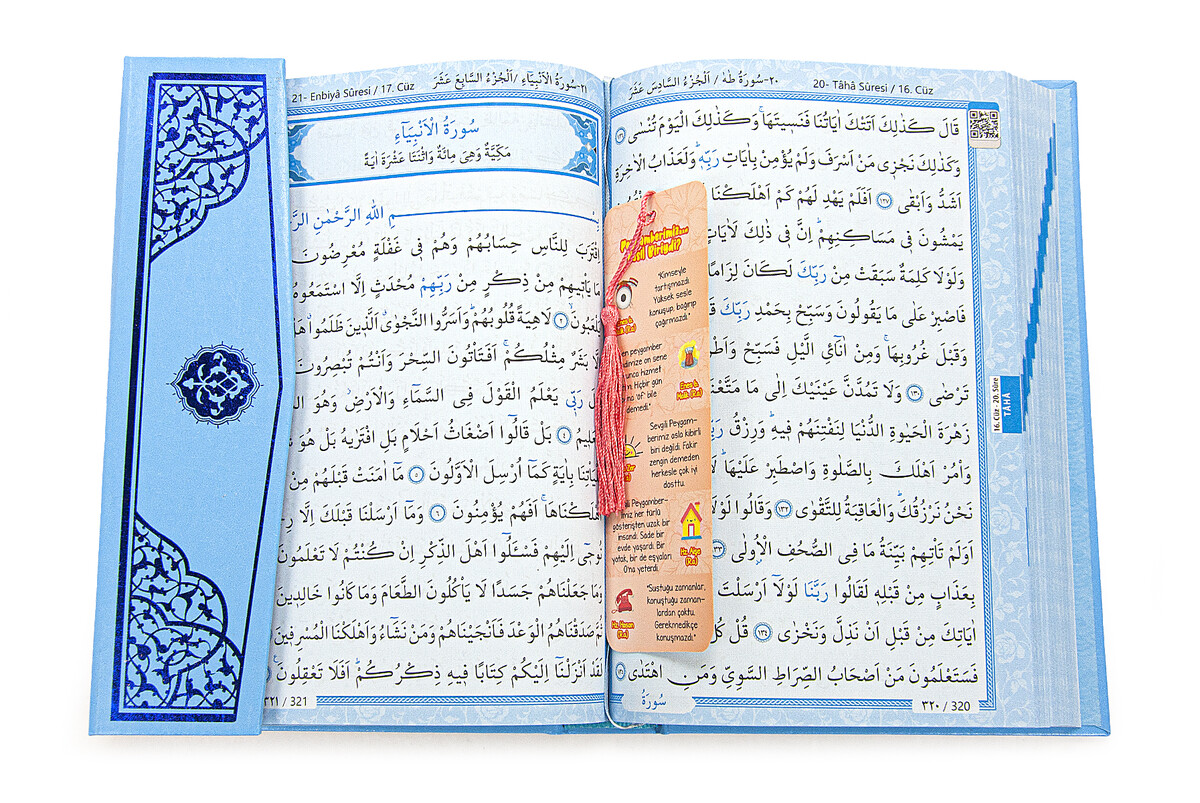 20- Tâhâ Sûresi / 16. Cüz
٢٠-سُورَةُ طٰهٰ / اَلْجُزْءُ السَّادِسَ عَشَرَ
قَالَ كَذٰلِكَ اَتَتْكَ اٰيَاتُنَا فَنَسٖيتَهَاۚ وَكَذٰلِكَ الْيَوْمَ تُنْسٰى ﴿١٢٦﴾
وَكَذٰلِكَ نَجْزٖى مَنْ اَسْرَفَ وَلَمْ يُؤْمِنْ بِاٰيَاتِ رَبِّهٖؕ وَلَعَذَابُ الْاٰخِرَةِ
اَشَدُّ وَاَبْقٰى ﴿١٢٧﴾ اَفَلَمْ يَهْدِ لَهُمْ كَمْ اَهْلَكْنَا
يَمْشُونَ فٖى مَسَاكِنِهِمْؕ اِنَّ فٖى ذٰلِكَ لَاٰيَاتٍ
وَلَوْلَا كَلِمَةٌ سَبَقَتْ مِنْ رَبِّكَ لَكَانَ لِزَامًا
فَاصْبِرْ عَلٰى مَا يَقُولُونَ وَسَبِّحْ بِحَمْدِ رَبِّكَ
وَقَبْلَ غُرُوبِهَاۚ وَمِنْ اٰنَٓائِ الَّيْلِ فَسَبِّحْ
تَرْضٰى ﴿١٣٠﴾ وَلَا تَمُدَّنَّ عَيْنَيْكَ اِلٰى مَا مَتَّعْنَا
زَهْرَةَ الْحَيٰوةِ الدُّنْيَا لِنَفْتِنَهُمْ فٖيهِؕ وَرِزْقُ
وَأْمُرْ اَهْلَكَ بِالصَّلٰوةِ وَاصْطَبِرْ عَلَيْهَاؕ
نَحْنُ نَرْزُقُكَؕ وَالْعَاقِبَةُ لِلتَّقْوٰى ﴿١٣٢﴾ وَقَالُوا لَوْلَا
اَوَلَمْ تَأْتِهِمْ بَيِّنَةُ مَا فِى الصُّحُفِ الْاُولٰى ﴿١٣٣﴾
بِعَذَابٍ مِنْ قَبْلِهٖ لَقَالُوا رَبَّنَا لَوْلَٓا اَرْسَلْتَ
اٰيَاتِكَ مِنْ قَبْلِ اَنْ نَذِلَّ وَنَخْزٰى ﴿١٣٤﴾ قُلْ كُلٌّ
فَسَتَعْلَمُونَ مَنْ اَصْحَابُ الصِّرَاطِ السَّوِىِّ وَمَنِ اهْتَدٰى ﴿١٣٥﴾
سُورَةُ
٣٢٠ / 320
16. Cüz - 20. Sûre
TÂHÂ
Peygamberimiz...
Nasıl Biriydi?
"Kimseyle
tartışmazdı.
Yüksek sesle
konuşup, bağırıp
çağırmazdı."
peygamber
on sene
hizmet
Hiçbir gün
'of' bile
demedi."
Enes b.
Malik (Ra)
Sevgili Peygam-
berimiz asla kibirli
biri değildi. Fakir
zengin demeden
herkesle çok iyi
dosttu.
Peygamber-
imiz her türlü
gösterişten uzak bir
insandı. Sade bir
evde yaşardı. Bir
yatak, bir de eşyaları
O'na yeterdi.
Hz. Aişe
(Ra)
"Sustuğu zamanlar,
konuştuğu zaman-
lardan çoktu.
Gerekmedikçe
konuşmazdı."
Hz. Hasan
(Ra)
21- Enbiyâ Sûresi / 17. Cüz
٢١-سُورَةُ الْاَنْبِيَٓاءِ / اَلْجُزْءُ السَّابِعَ عَشَرَ
سُورَةُ الْاَنْبِيَٓاءِ
مَكِّيَّةٌ وَهِىَ مِائَةٌ وَاثْنَتَا عَشْرَةَ اٰيَةً
اللّٰهِ الرَّحْمٰنِ
اِقْتَرَبَ لِلنَّاسِ حِسَابُهُمْ وَهُمْ فٖى غَفْلَةٍ مُعْرِضُونَ
مَا يَأْتٖيهِمْ مِنْ ذِكْرٍ مِنْ رَبِّهِمْ مُحْدَثٍ اِلَّا اسْتَمَعُوهُ
يَلْعَبُونَۙ ﴿٢﴾ لَاهِيَةً قُلُوبُهُمْؕ وَاَسَرُّوا النَّجْوٰىۗ اَلَّذٖينَ ظَلَمُواۗ
بَشَرٌ مِثْلُكُمْۚ اَفَتَأْتُونَ السِّحْرَ وَاَنْتُمْ تُبْصِرُونَ
رَبّٖى يَعْلَمُ الْقَوْلَ فِى السَّمَٓاءِ وَالْاَرْضِؗ وَهُوَ
﴿٤﴾ بَلْ قَالُٓوا اَضْغَاثُ اَحْلَامٍ بَلِ افْتَرٰيهُ بَلْ هُوَ
بِاٰيَةٍ كَمَٓا اُرْسِلَ الْاَوَّلُونَ ﴿٥﴾ مَٓا اٰمَنَتْ قَبْلَهُمْ مِنْ
اَهْلَكْنَاهَاۚ اَفَهُمْ يُؤْمِنُونَ ﴿٦﴾ وَمَٓا اَرْسَلْنَا قَبْلَكَ اِلَّا
نُوحٖٓى اِلَيْهِمْ فَسْـَٔلُٓوا اَهْلَ الذِّكْرِ اِنْ كُنْتُمْ لَا تَعْلَمُونَ
وَمَا جَعَلْنَاهُمْ جَسَدًا لَا يَأْكُلُونَ الطَّعَامَ وَمَا كَانُوا خَالِدٖينَ
ثُمَّ صَدَقْنَاهُمُ الْوَعْدَ فَاَنْجَيْنَاهُمْ وَمَنْ نَشَٓاءُ وَاَهْلَكْنَا الْمُسْرِفٖينَ
لَقَدْ اَنْزَلْنَٓا اِلَيْكُمْ كِتَابًا فٖيهِ ذِكْرُكُمْؕ اَفَلَا تَعْقِلُونَ
٣٢١ / 321